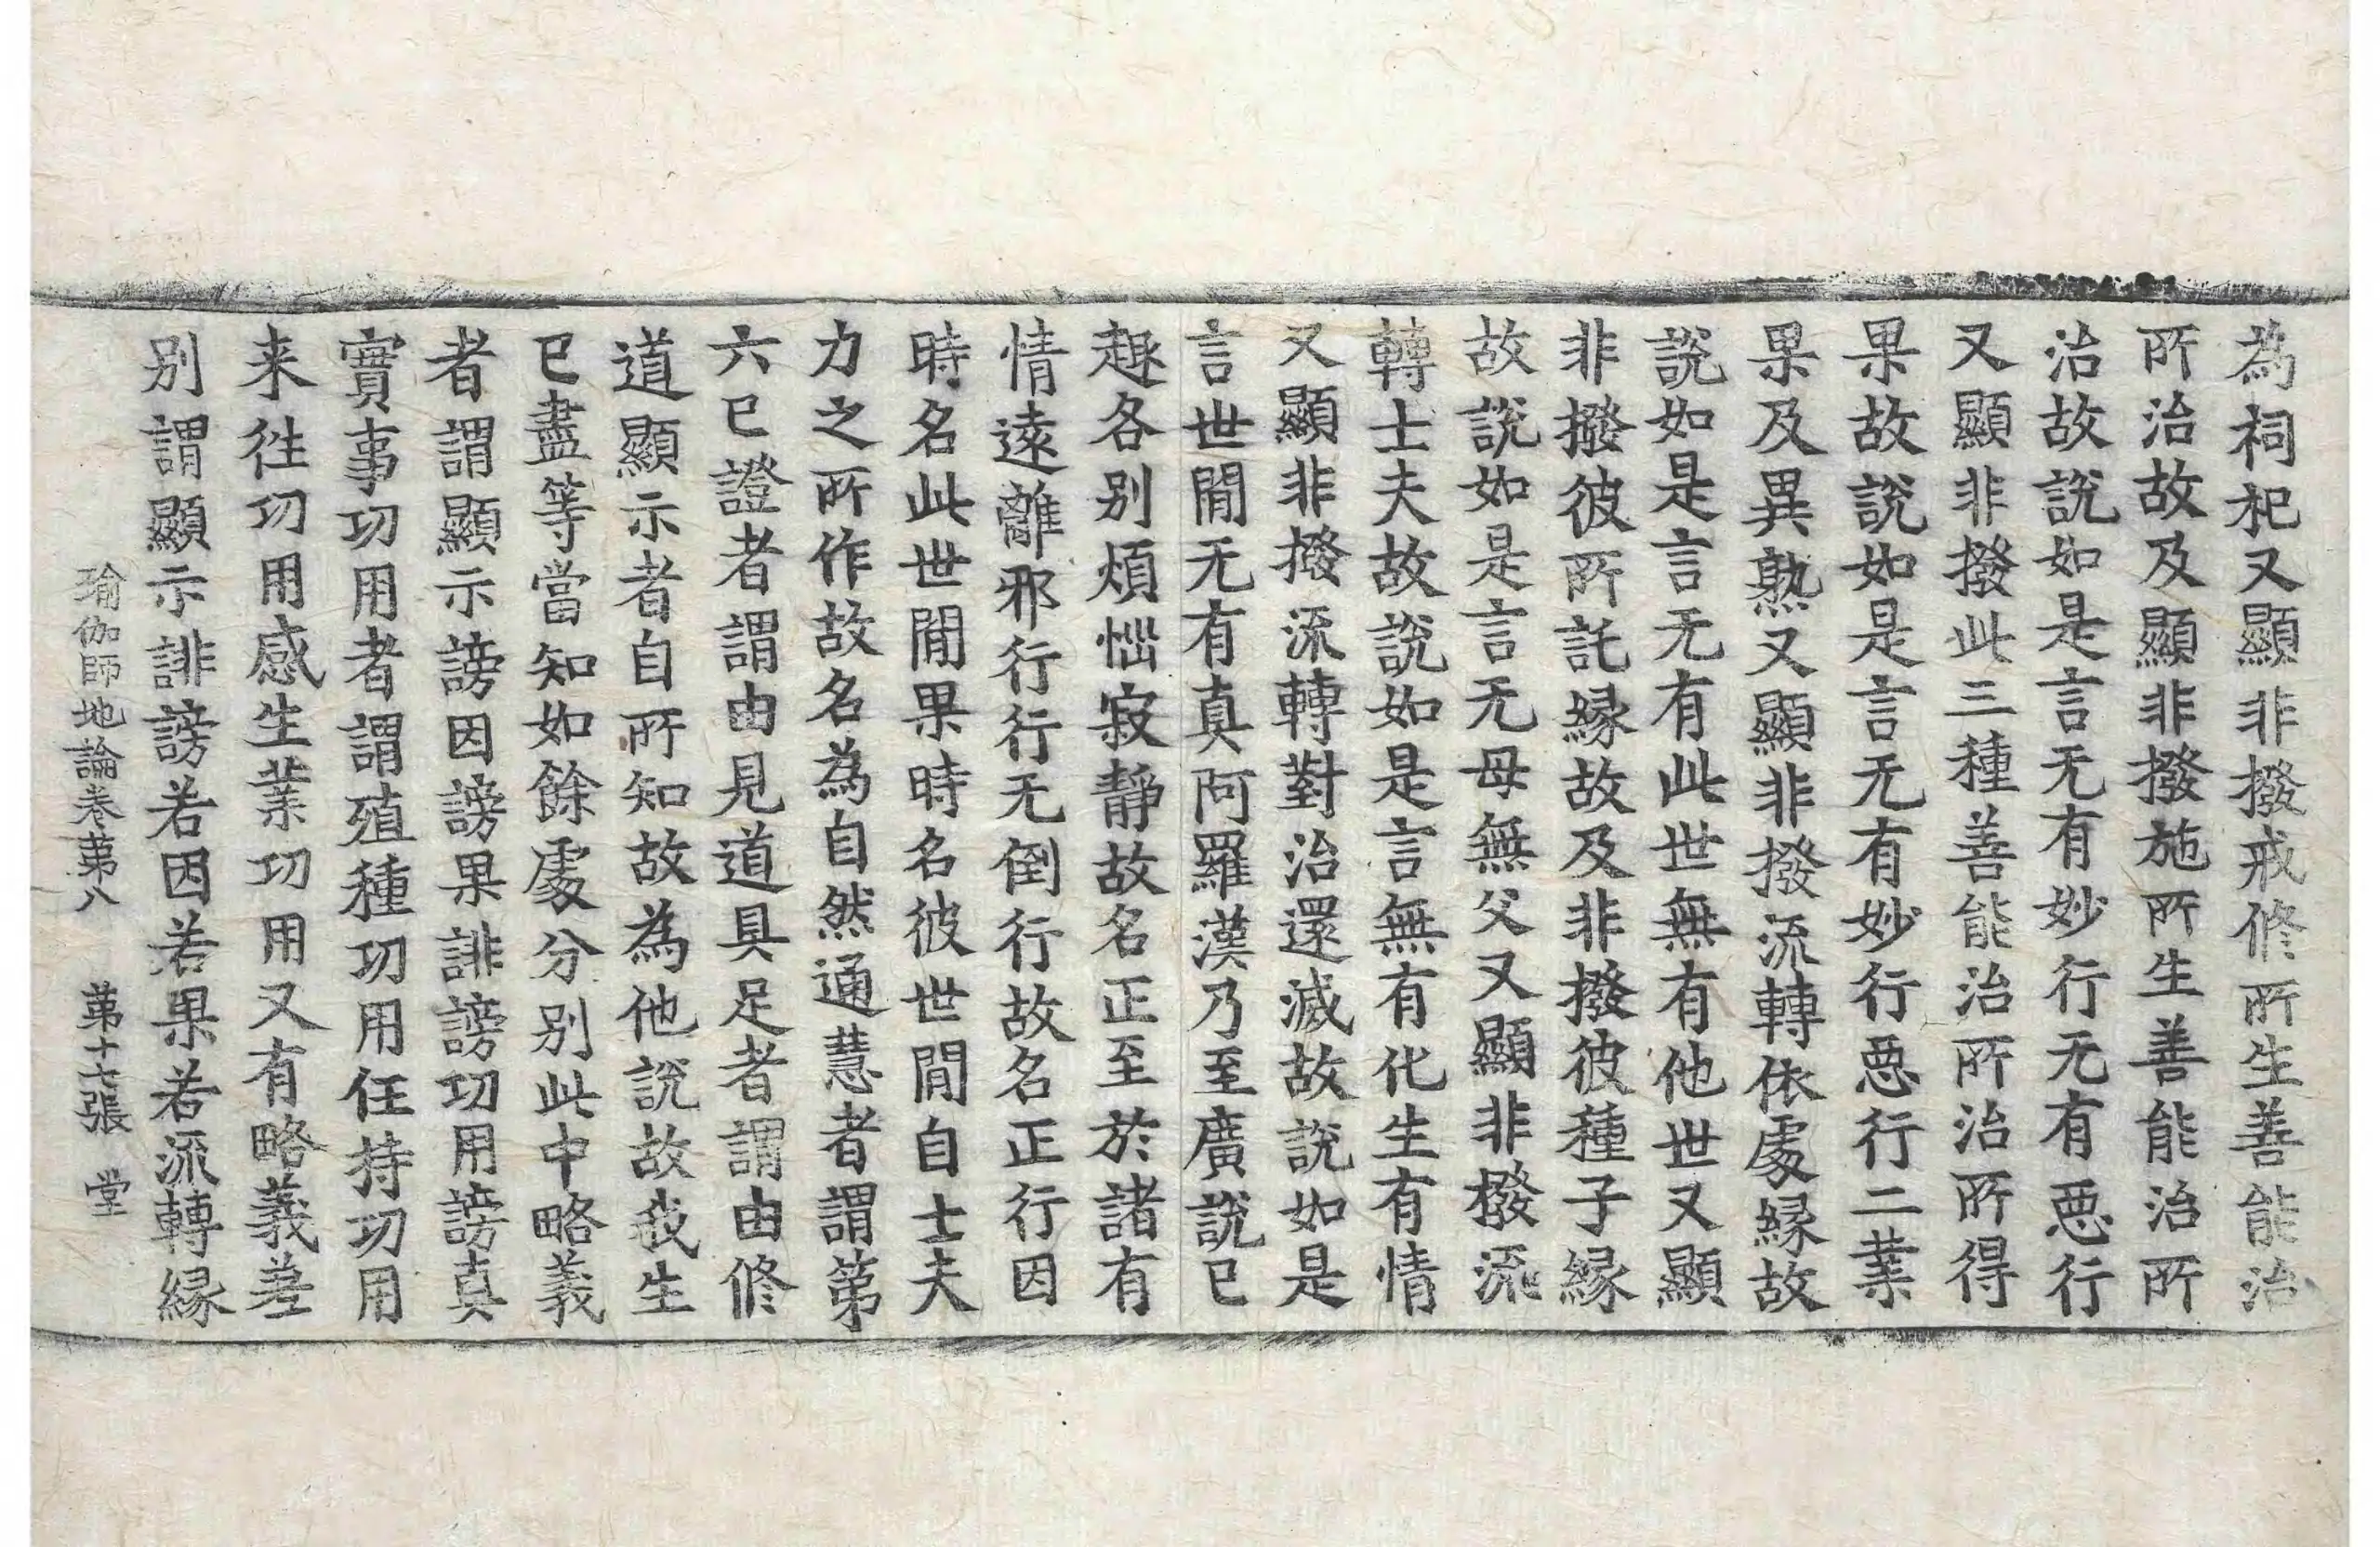 為祠祀又顯非撥戒修所生善能治
所治故及顯非撥施所生善能治所
治故說如是言无有妙行无有惡行
又顯非撥此三種善能治所治所得
果故說如是言无有妙行惡行二業
果及異熟又顯非撥流轉依處縁故
說如是言无有此世無有他世又顯
非撥彼所託縁故及非撥彼種子縁
故說如是言无母無父又顯非撥流
轉士夫故說如是言無有化生有情
又顯非撥流轉對治還滅故說如是
言世閒无有真阿羅漢乃至廣說已
趣各别煩惱寂静故名正至於諸有
情遠離邪行行无倒行故名正行因
時名此世閒果時名彼世閒自士夫
力之所作故名為自然通慧者謂第
六已證者謂由見道具足者謂由修
道顯示者自所知故為他說故我生
已盡等當知如餘處分别此中略義
者謂顯示謗因謗果誹謗功用謗真
實事功用者謂殖種功用任持功用
来徃功用感生業功用又有略義差
别謂顯示誹謗若因若果若流轉縁
瑜伽師地論卷第八　第十七張　堂